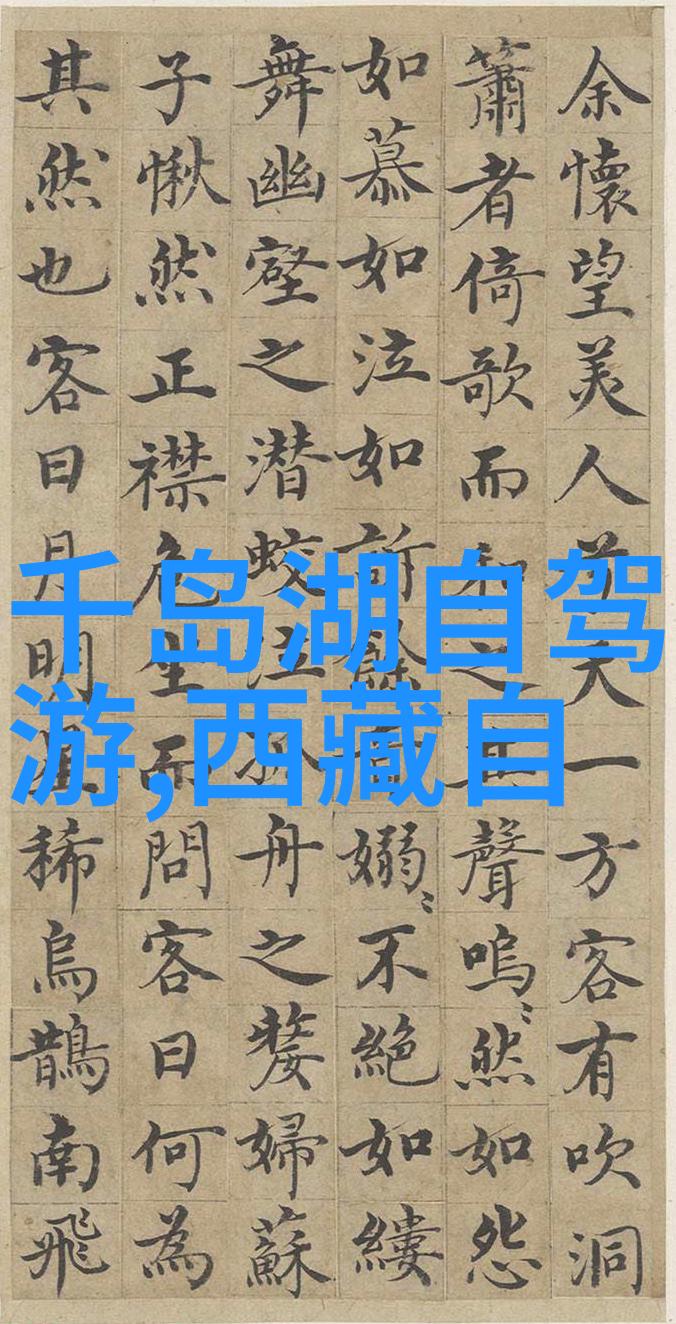 余懷望美人兮天一方客有吹洞
簫者倚歌而和之其聲嗚〻然如怨
如慕如泣如訴餘音嫋〻不絕如縷
舞幽壑之潜蛟泣孤舟之嫠婦蘇
子愀然正襟危坐而問客曰何為
其然也客曰月明星稀烏鵲南飛
千岛湖自驾
游,西藏自